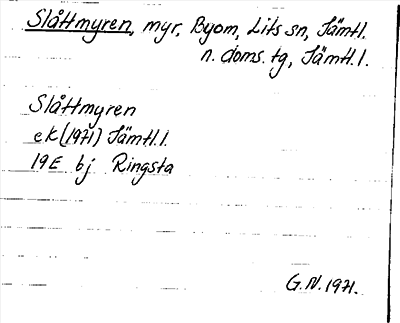 Slåttmyren, myr, Byom, Lits sn, Jämtl.
n. doms. tg, Jämtl. l.
Slåttmyren
ek (1971) Jämtl. l.
19E bj Ringsta
G.N. 1971.